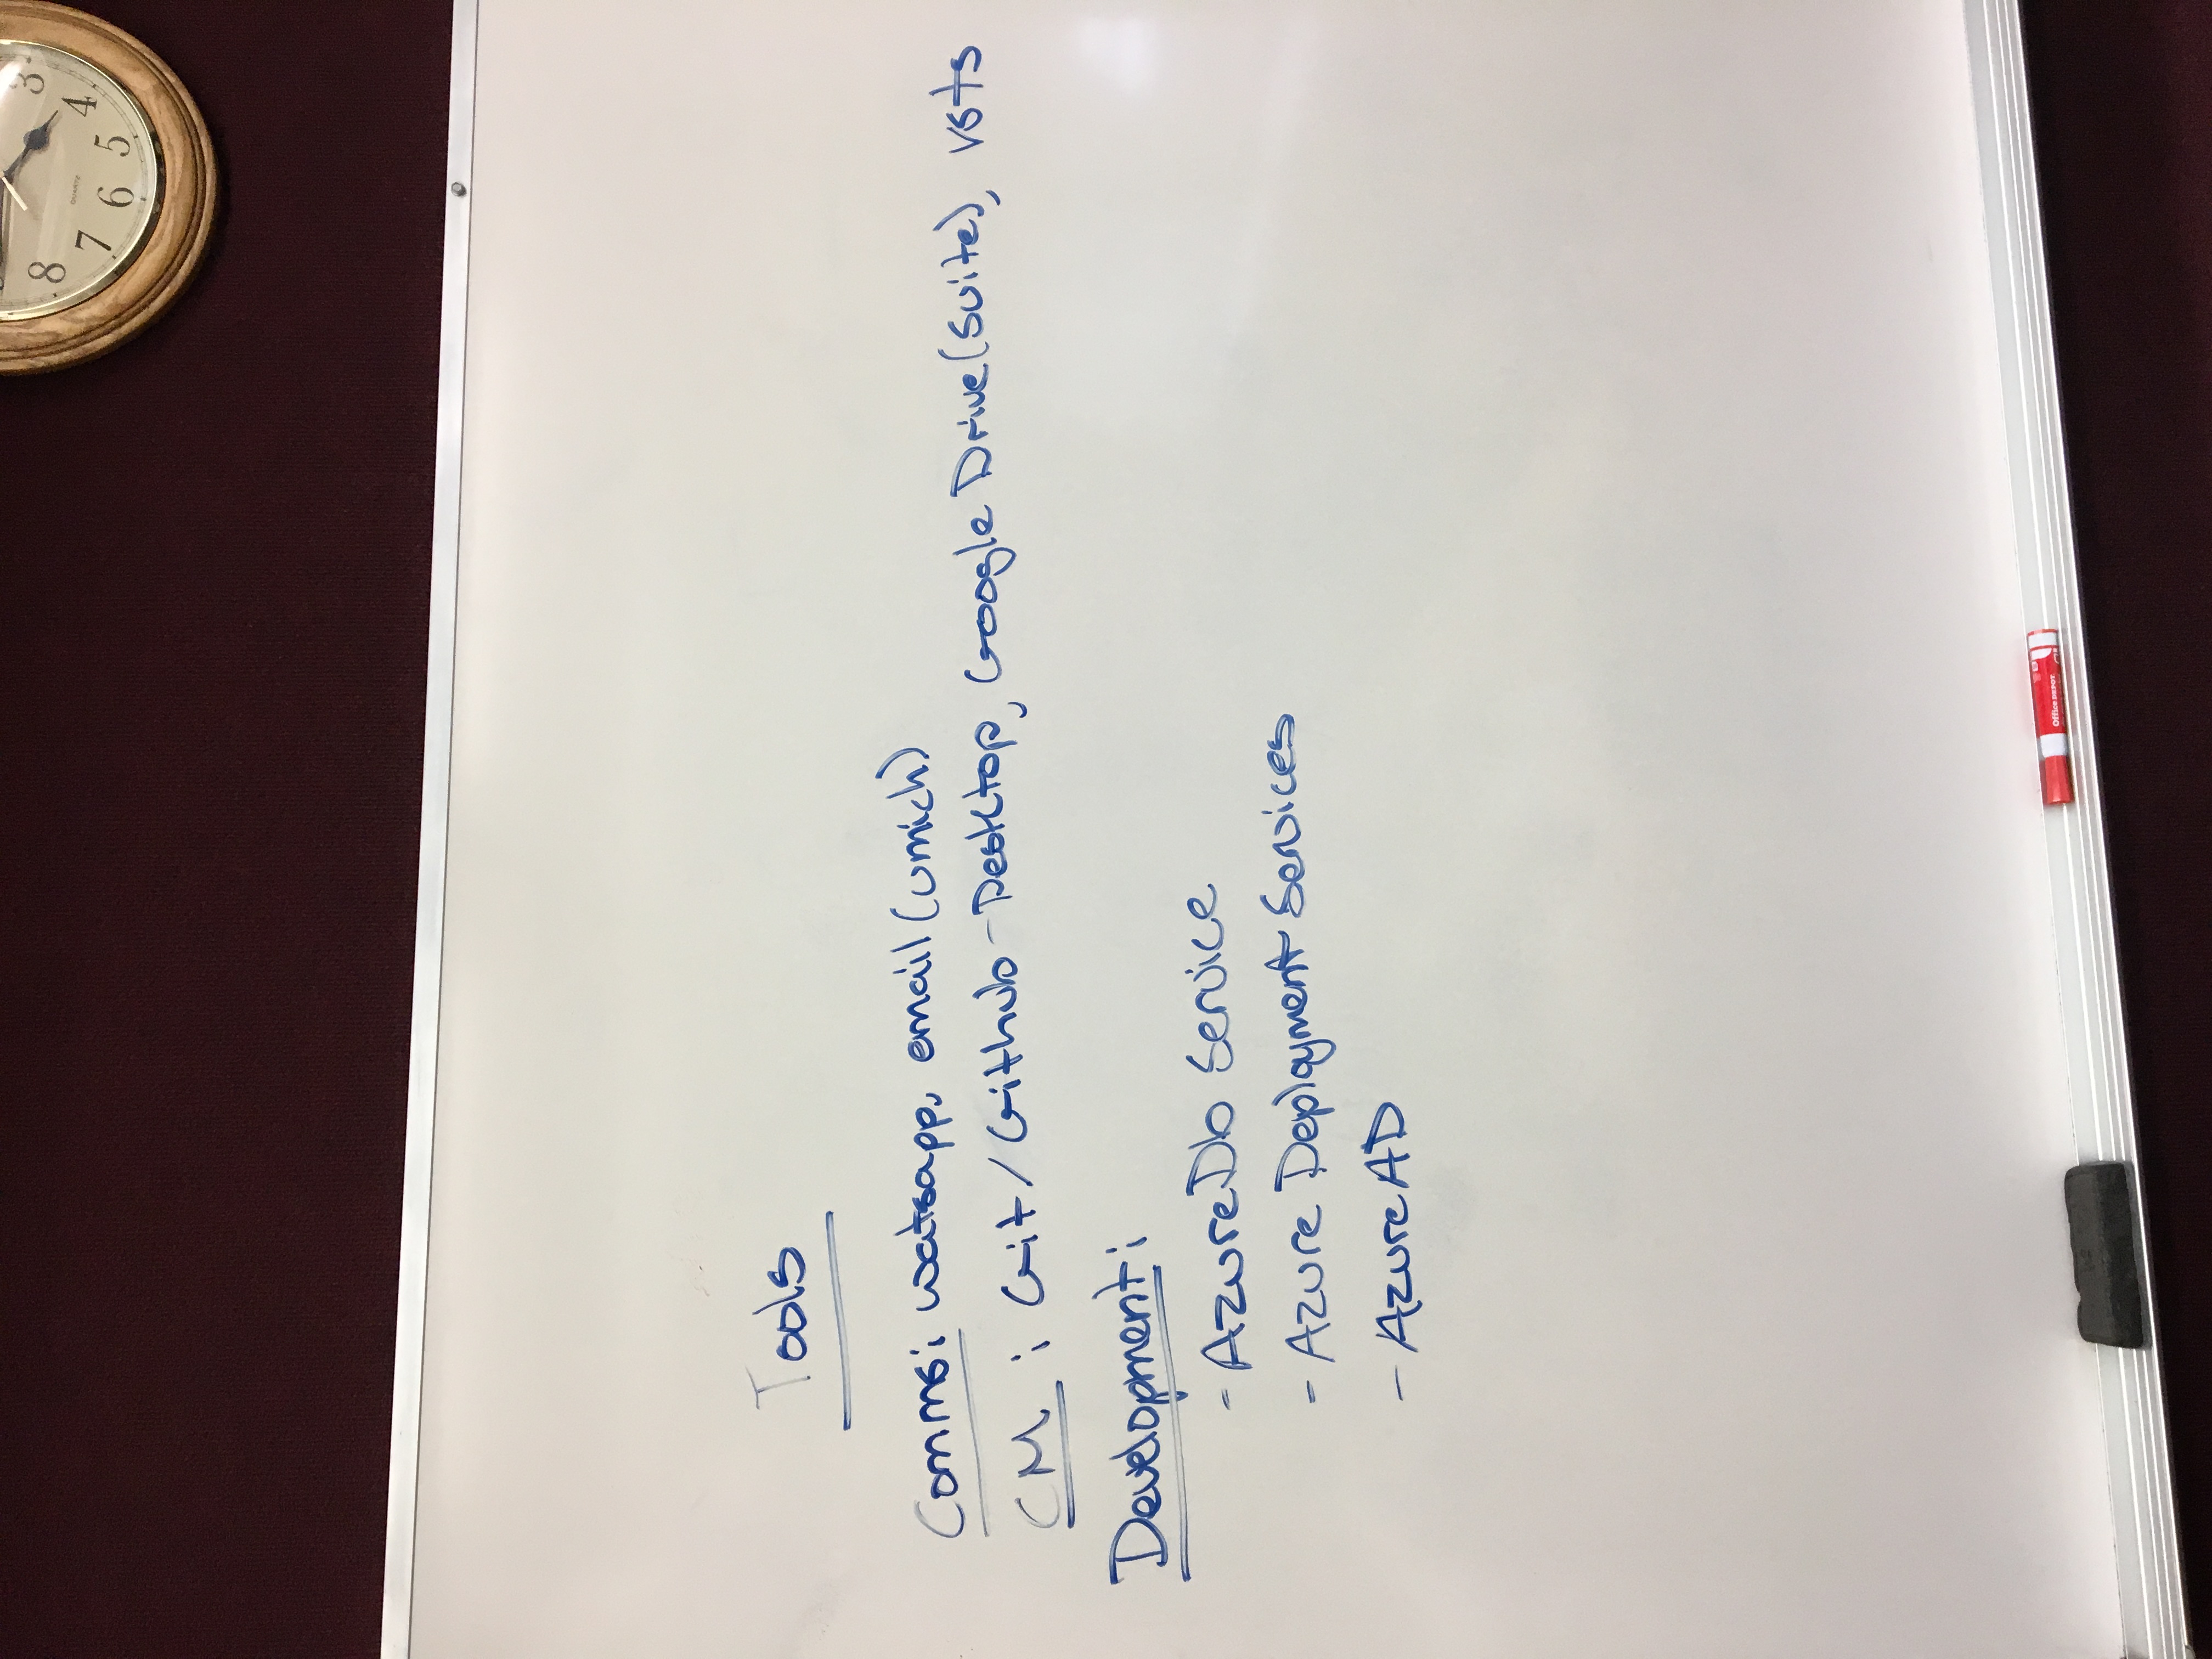 3
8
4
QUARTZ
7
6
5
Tools
Comms: watsapp, email (umich)
CM : Git/Github-Desktop, Google Drive (Suite), vsts
Development:
- AzureDb Service
- Azure Deployment Services
- AzureAD
Office DEPOT